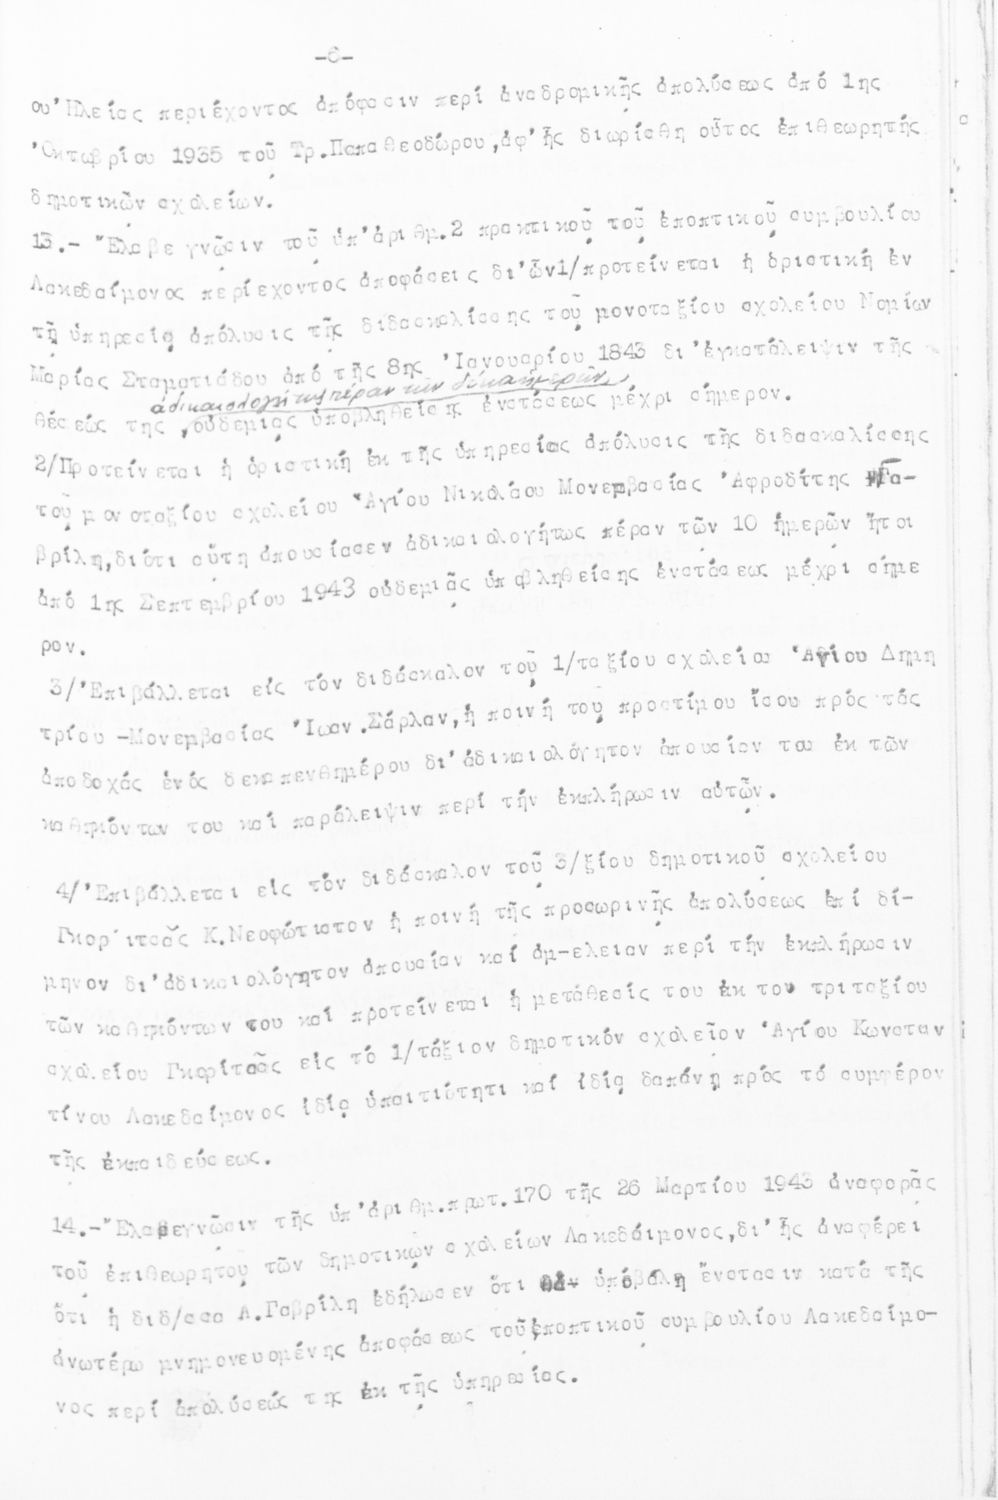 -6-
ου Ἠλείας περιέχοντος ἀπόφασιν περί ἀναδρομικῆς ἀπολύσεως ἀπό 1ης
Ὀκτωβρίου 1935 τοῦ Τρ.Παπαθεοδώρου,ἀφ'ἧς διωρίσθη οὗτος ἐπιθεωρητής
δημοτικῶν σχολείων.
13.- Ἔλαβε γνῶσιν τοῦ ὑπ'ἀριθμ.2 πρακτικοῦ τοῦ ἐποπτικοῦ συμβουλίου
Λακεδαίμονος περίεχοντος ἀποφάσεις δι'ὧν1/προτείνεται ἡ ὁριστική ἐν
τῇ ὑπηρεσίᾳ ἀπόλυσις τῆς διδασκαλίσσης τοῦ μονοταξίου σχολείου Νομίων
Μαρίας Σταματιάδου ἀπό τῆς 8ης Ἰανουαρίου 1843 δι'ἐγκατάλειψιν τῆς
ἀδικαιολογήτως πέραν τῶν δέκα ἡμερῶν
θέσεώς της ,οὐδεμιᾶς ὑποβληθείσης ἐνστάσεως μέχρι σήμερον.
2/Προτείνεται ἡ ὁριστική ἐκ τῆς ὑπηρεσίας ἀπόλυσις τῆς διδασκαλίσσης
τοῦ μονοταξίου σχολείου Ἁγίου Νικολάου Μονεμβασίας Ἀφροδίτης Γα-
βρίλη,διότι αὕτη ἀπουσίασεν ἀδικαιολογήτως πέραν τῶν 10 ἡμερῶν ἤτοι
ἀπό 1ης Σεπτεμβρίου 1943 οὐδεμιᾶς ὑποβληθείσης ἐνστάσεως μέχρι σήμε
ρον.
3/Ἐπιβάλλεται εἰς τόν διδάσκαλον τοῦ 1/ταξίου σχολείου Ἁγίου Δημη
τρίου -Μονεμβασίας Ἰωαν.Σάρλαν,ἡ ποινή του προστίμου ἴσου πρός τάς
ἀποδοχάς ἑνός δεκαπενθημέρου δι'ἀδικαιολόγητον ἀπουσίαν του ἐκ τῶν
καθηκόντων του καί παράλειψιν περί τήν ἐκπλήρωσιν αὐτῶν.
4/Ἐπιβάλλεται εἰς τόν διδάσκαλον τοῦ 3/ξίου δημοτικοῦ σχολείου
Γκορίτσᾶς Κ.Νεοφώτιστον ἡ ποινή τῆς προσωρινῆς ἀπολύσεως ἐπί δί-
μηνον δι'ἀδικαιολόγητον ἀπουσίαν καί ἀμ-ελειαν περί τήν ἐκπλήρωσιν
τῶν καθηκόντων του καί προτείνεται ἡ μετάθεσίς του ἐκ του τριταξίου
σχολείου Γκορίτσᾶς εἰς τό 1/τάξιον δημοτικόν σχολεῖον Ἁγίου Κωνσταν
τίνου Λακεδαίμονος ἰδίᾳ ὑπαιτιότητι καί ἰδίᾳ δαπάνῃ πρός τό συμφέρον
τῆς ἐκπαιδεύσεως.
14.-Ἔλαβεγνῶσιν τῆς ὑπ'ἀριθμ.πρωτ.170 τῆς 26 Μαρτίου 1943 ἀναφορᾶς
τοῦ ἐπιθεωρητοῦ τῶν δημοτικῶν σχολείων Λακεδάιμονος,δι'ἧς ἀναφέρει
ὅτι ἡ διδ/σσα Α.Γαβρίλη ἐδήλωσεν ὅτι θά ὑπόβάλῃ ἔνστασιν κατά τῆς
ἀνωτέρω μνημονευομένης ἀποφάσεως τοῦ ἐποπτικοῦ συμβουλίου Λακεδαίμο-
νος περί ἀπολύσεώς της ἐκ τῆς ὑπηρεσίας.